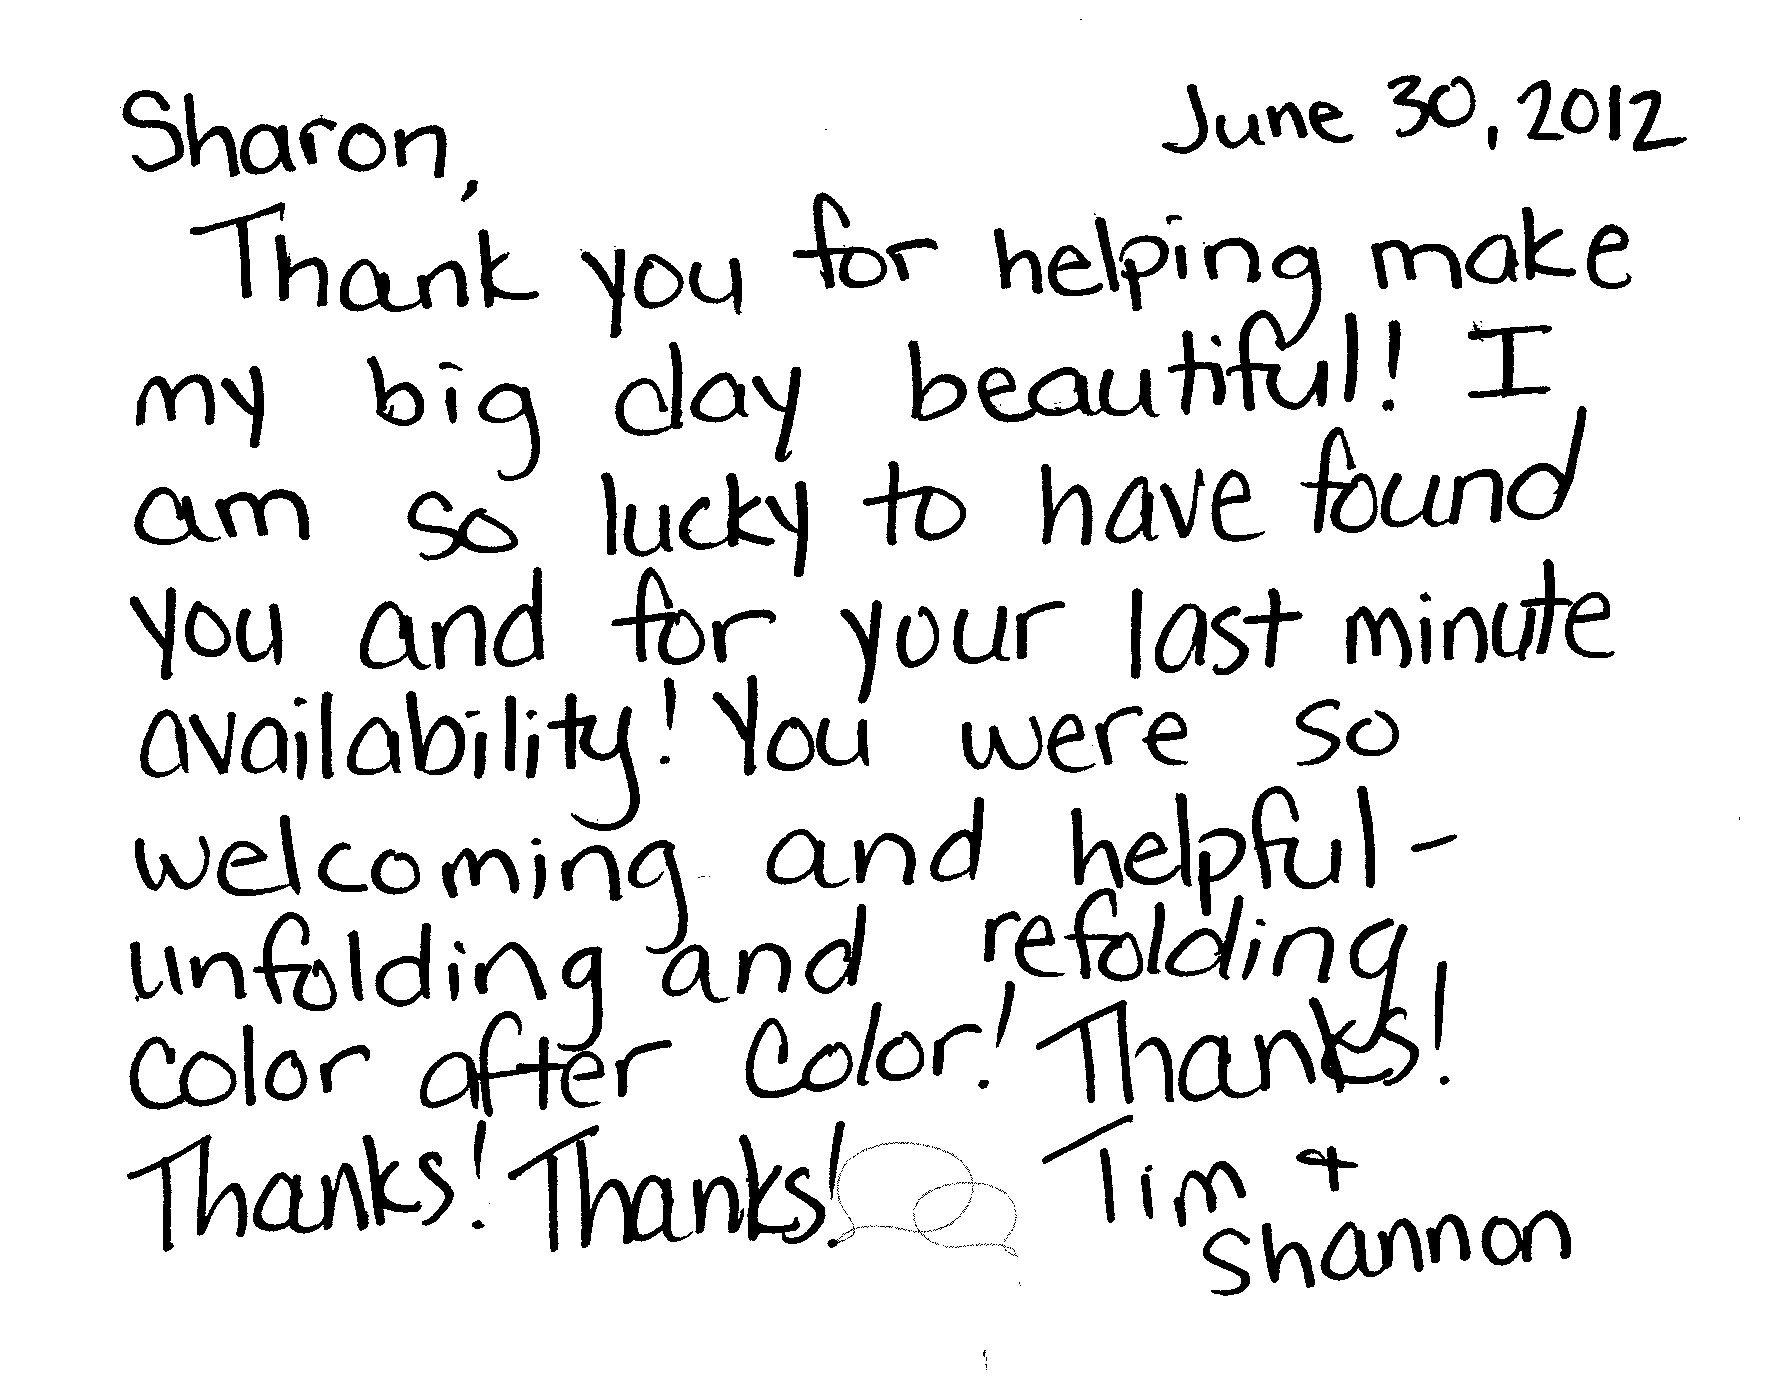 Sharon, June 30, 2012
Thank you for helping make
my big day beautiful! I
am so lucky to have found
you and for your last minute
availability! You were so
welcoming and helpful -
unfolding and refolding
color after color! Thanks!
Thanks! Thanks! Tim +
Shannon